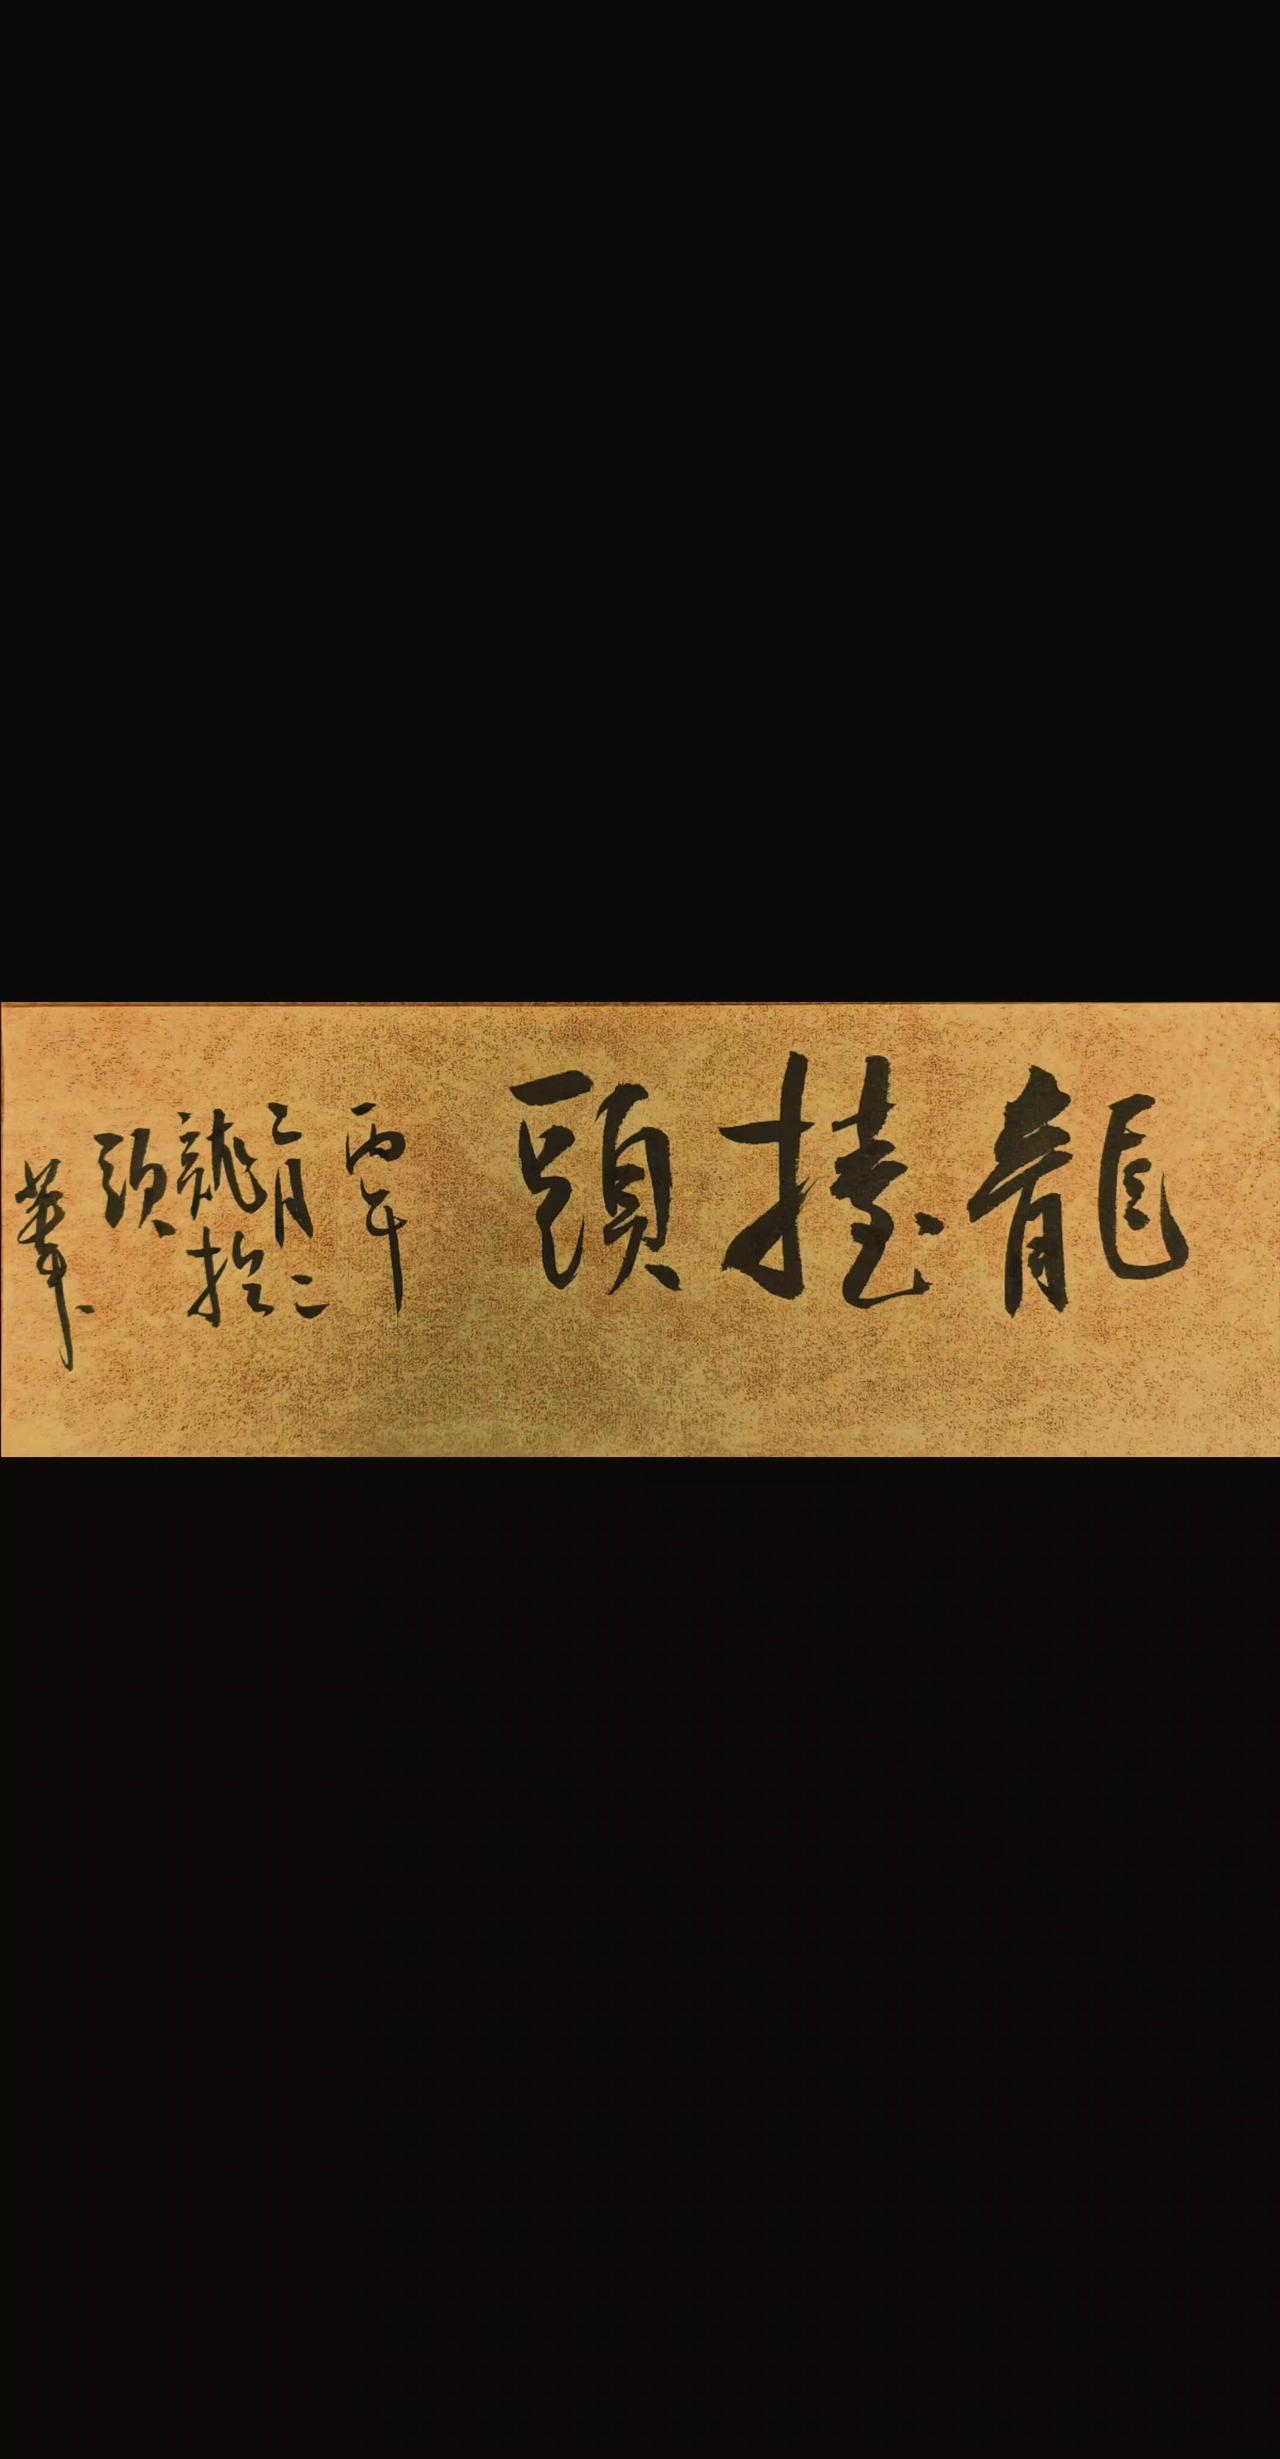 龍擡頭
丙午
二月二
龍抬
頭